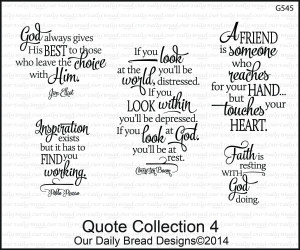 G545
God always gives
His BEST to those
who leave the choice
with Him.
Jim Elliot
Inspiration
exists
but it has to
FIND you
working.
Pablo Picasso
If you look
at the world, you'll be
distressed.
If you
LOOK within
you'll be depressed.
If you look at God,
you'll be at
rest.
Corrie Ten Boom
A FRIEND
is someone
who
reaches
for your HAND...
but
touches your
HEART.
Faith is
resting
WITH
God
doing.
Quote Collection 4
Our Daily Bread Designs©2014